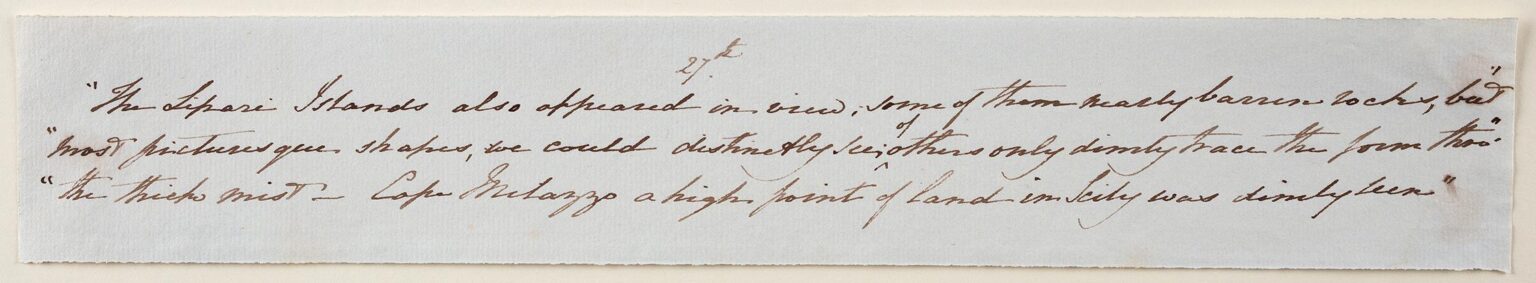 27th
"The Lipari Islands also appeared in view; some of them nearly barren rocks, but"
"most picturesque shapes, we could distinctly see, of others only dimly trace the form thro'"
"the thick mist – Cape Melazzo a high point of land in Scily was dimly seen"